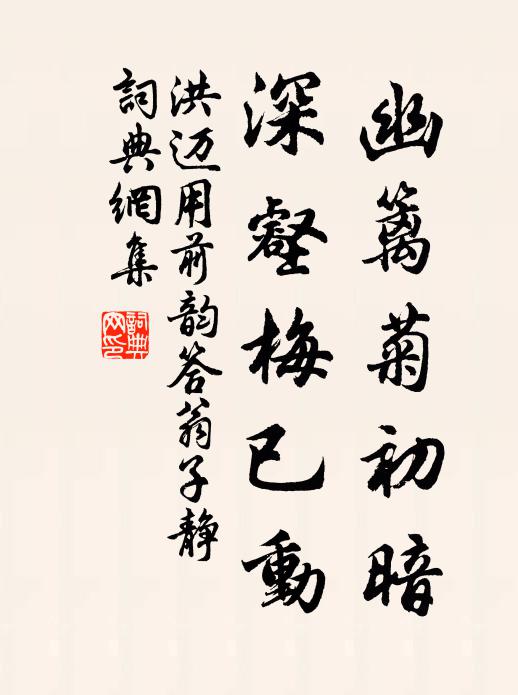 幽篱菊初暗
深壑梅已动
洪迈用前韵答翁子静
词典网集
词典
网印